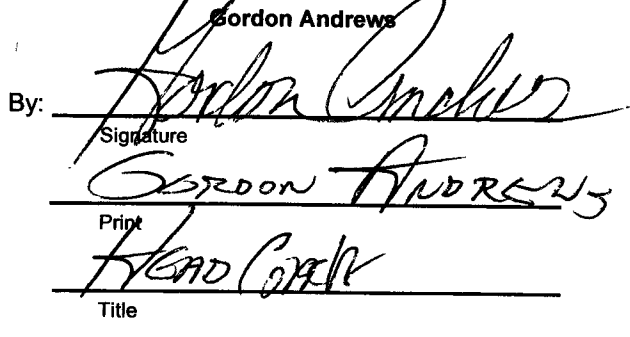 Gordon Andrews
By: Gordon Andrews
Signature
GORDON ANDREWS
Print
HEAD COACH
Title